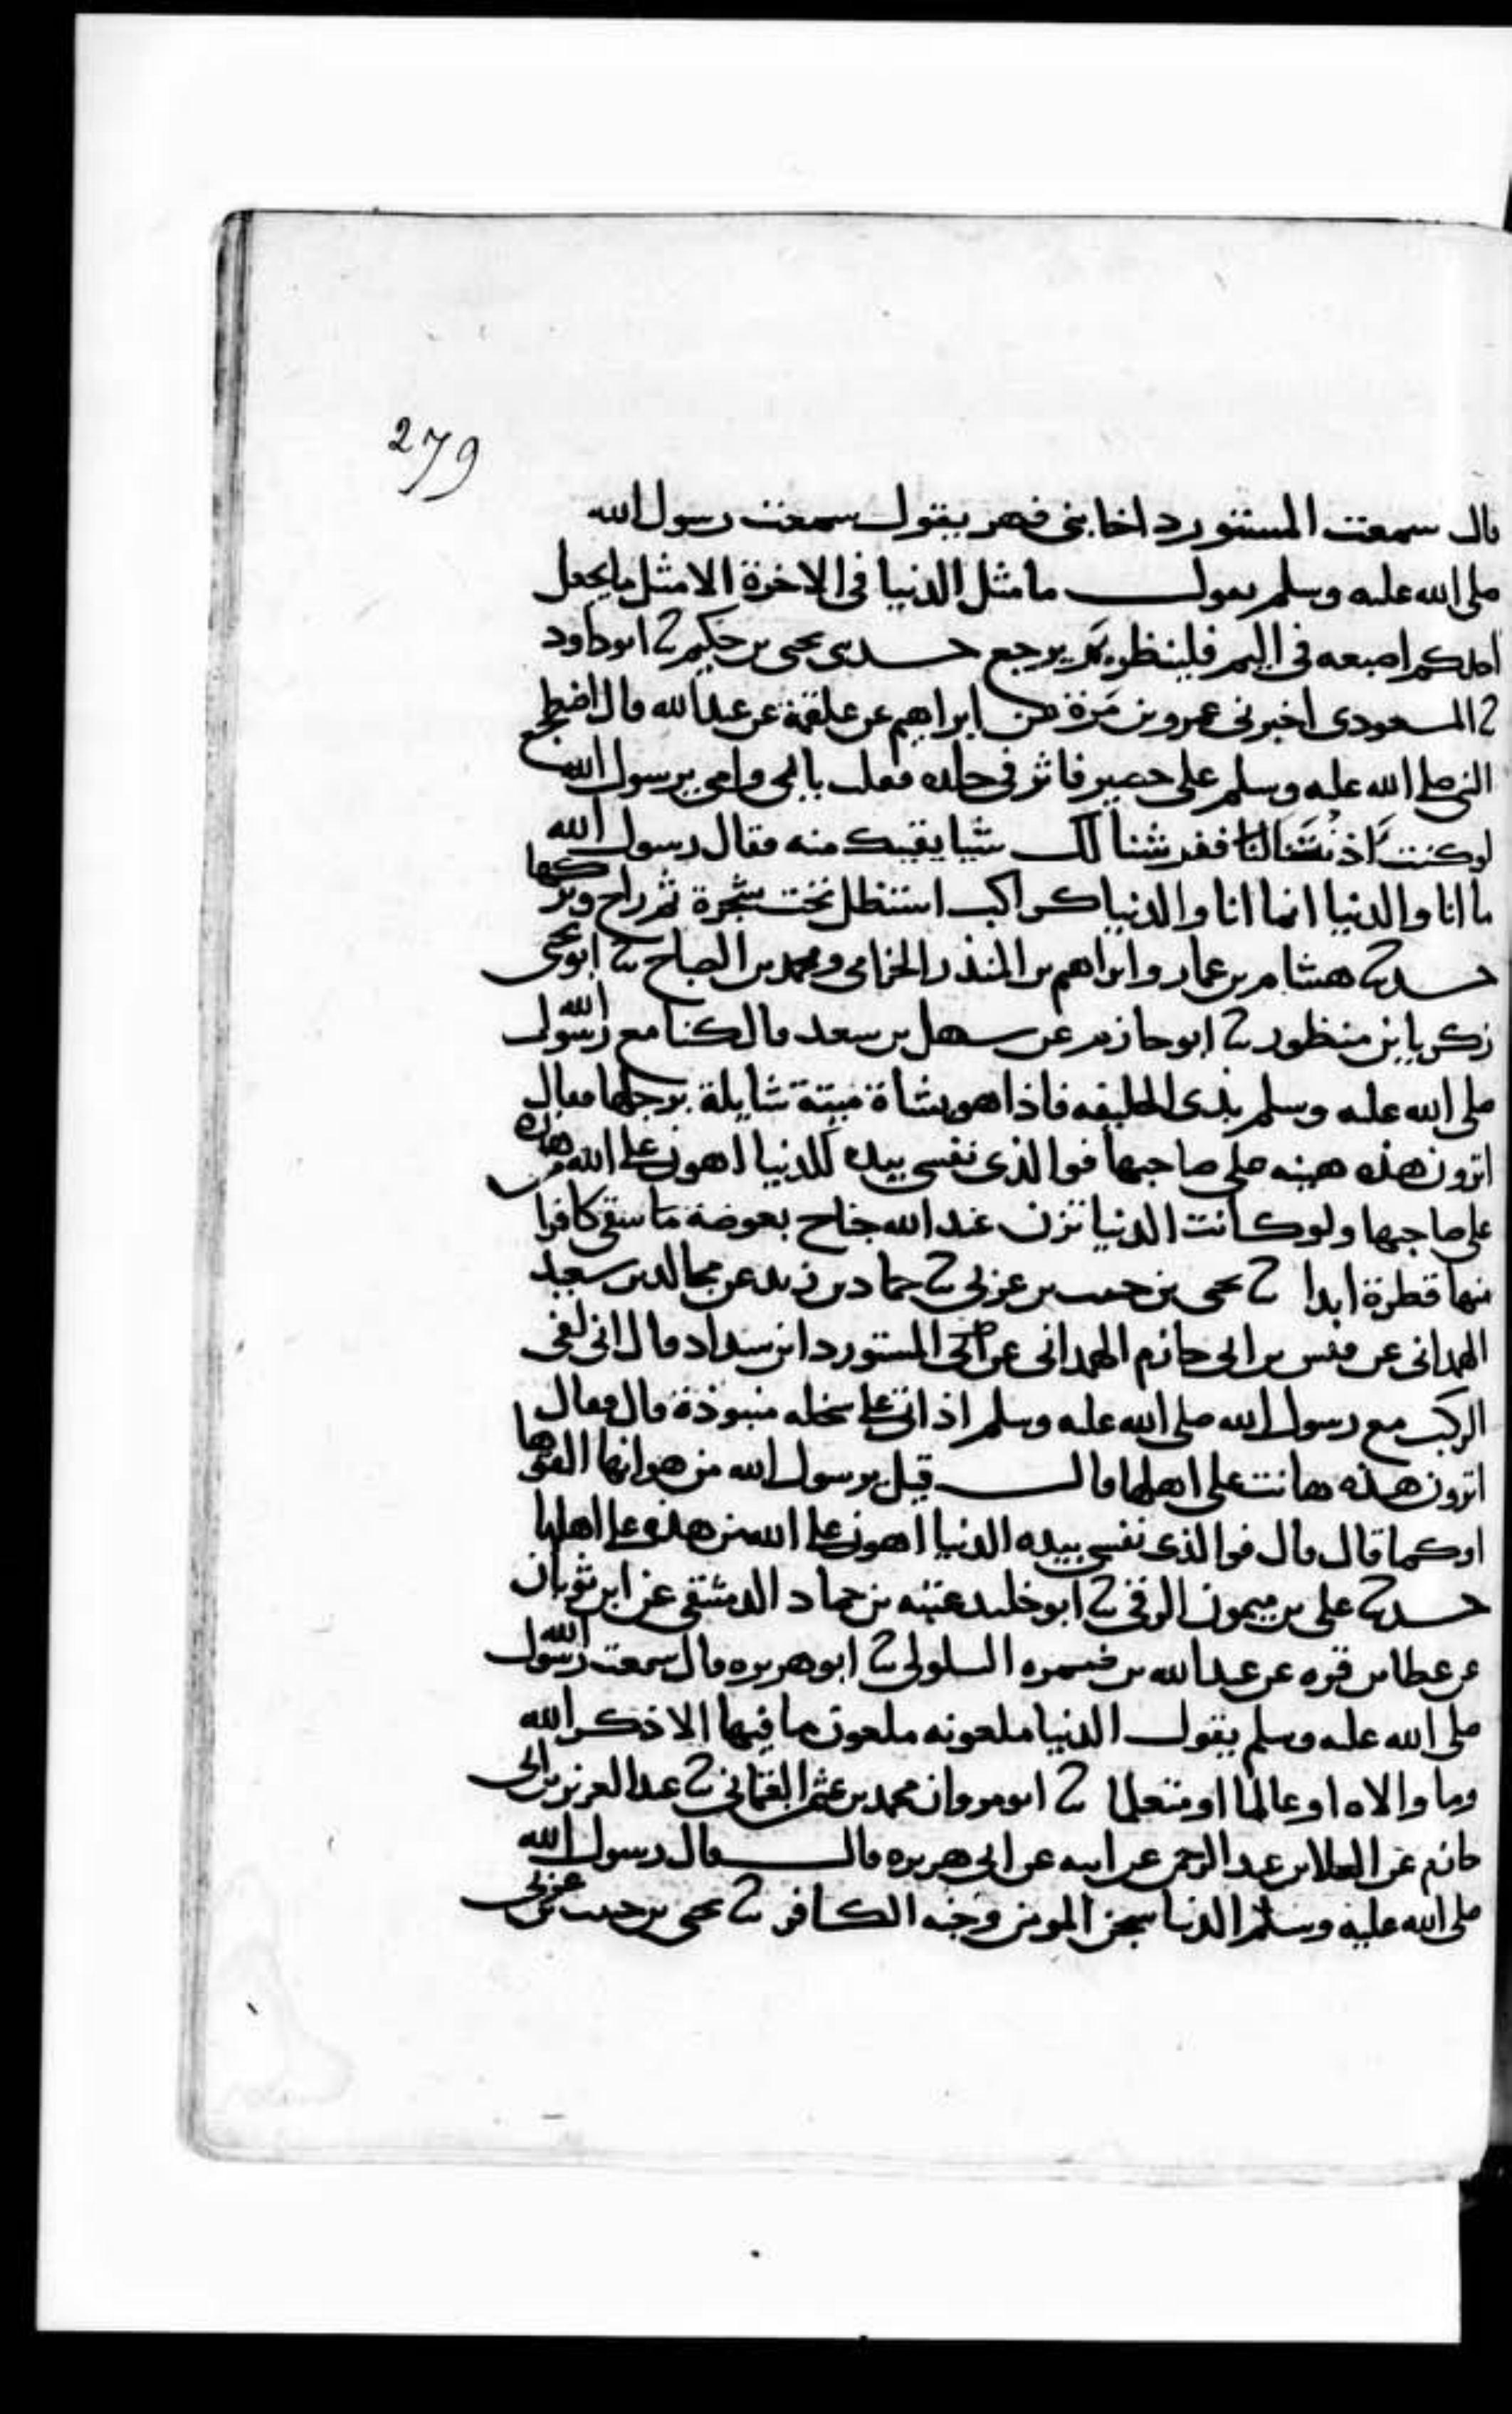 279
قال سمعت المستورد اخا بنى فهر يقول سمعت رسول الله
صلى الله عليه وسلم يقول ما مثل الدنيا فى الاخرة الا مثل ما يجعل
احدكم اصبعه فى اليم فلينظر بم يرجع حدثنى يحيى بن حكيم ثنا ابو داود
ثنا المسعودى اخبرنى عمرو بن مرة عن ابراهيم عن علقمة عن عبد الله قال اضطجع
النبى صلى الله عليه وسلم على حصير فاثر فى جلده فقلت بابى وامى يرسول الله
لو كنت اذنتنا ففرشنا لك شيا يقيك منه فقال رسول الله
ما انا والدنيا انما انا والدنيا كراكب استظل تحت شجرة ثم راح وتركها
حدثنا هشام بن عمار وابراهيم بن المنذر الحزامى ومحمد بن الصباح ثنا ابو يحيى
زكريا بن منظور ثنا ابو حازم عن سهل بن سعد قال كنا مع رسول الله
صلى الله عليه وسلم بذى الحليفه فاذا هو بشاة ميتة شايلة برجلها فقال
اترون هذه هينه على صاحبها فوالذى نفسى بيده للدنيا اهون على الله من هذه
على صاحبها ولو كانت الدنيا تزن عند الله جناح بعوضة ما سقى كافرا
منها قطرة ابدا ثنا يحيى بن حبيب بن عربى ثنا حماد بن زيد عن مجالد بن سعيد
الهمدانى عن قيس بن ابى حازم الهمدانى عن المستورد ابن شداد قال انى لفى
الركب مع رسول الله صلى الله عليه وسلم اذ اتى على سخله منبوذة قال فقال
اترون هذه هانت على اهلها قال قيل يرسول الله من هوانها القوها
او كما قال قال فوالذى نفسى بيده الدنيا اهون على الله من هذه على اهلها
حدثنا على بن ميمون الرقى ثنا ابو خليد عتبه بن حماد الدمشقى عن ابن ثوبان
عن عطا بن قره عن عبد الله بن ضمره السلولى ثنا ابو هريره قال سمعت رسول الله
صلى الله عليه وسلم يقول الدنيا ملعونه ملعون ما فيها الا ذكر الله
وما والاه او عالما او متعلما ثنا ابو مروان محمد بن عثمن العثمانى ثنا عبد العزيز بن ابى
حازم عن العلا بن عبد الرحمن عن ابيه عن ابى هريره قال قال رسول الله
صلى الله عليه وسلم الدنيا سجن المومن وجنه الكافر ثنا يحيى بن حبيب بن عربى